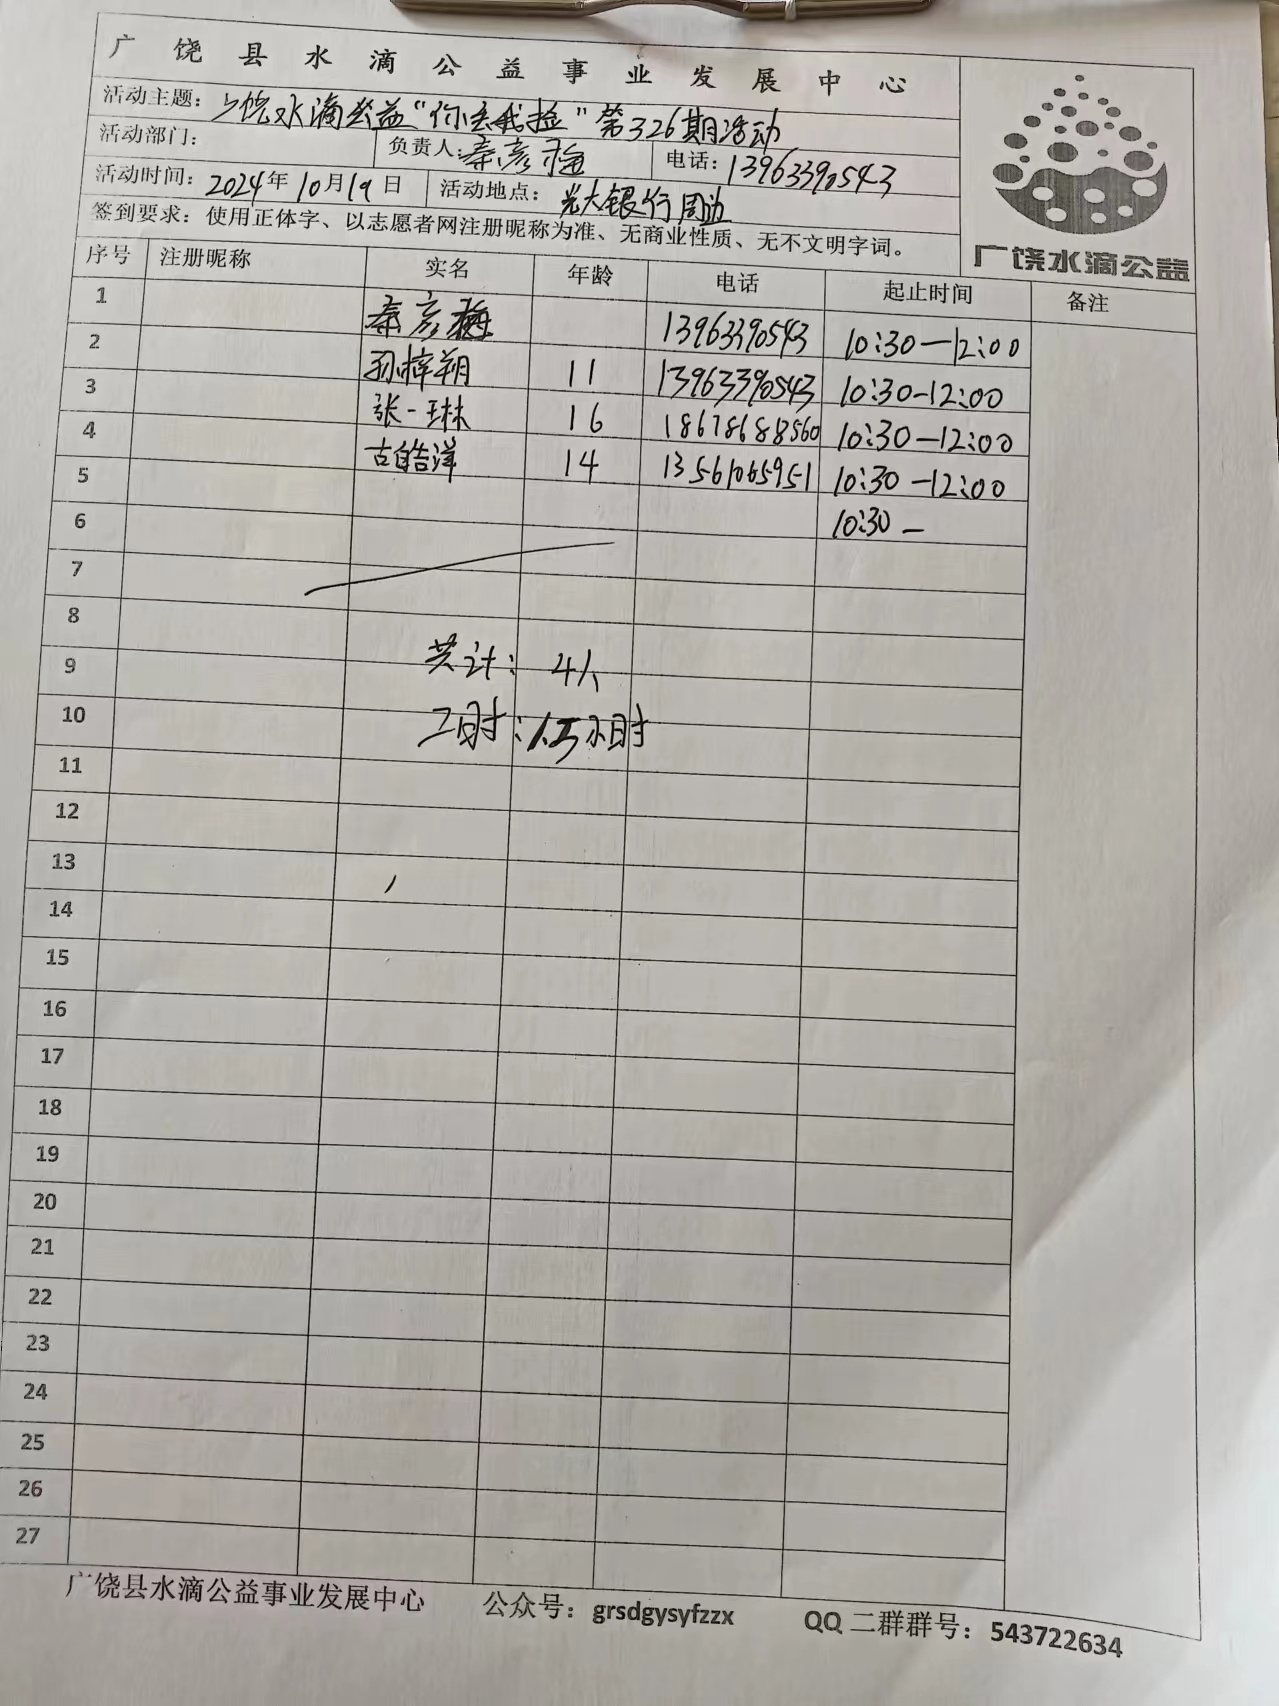 广饶县水滴公益事业发展中心
活动主题：广饶水滴公益“你丢我捡”第326期活动
活动部门： 负责人：秦彦梅 电话：13963390543
活动时间：2024年10月19日 活动地点：光大银行周边
签到要求：使用正体字、以志愿者网注册昵称为准、无商业性质、无不文明字词。
广饶水滴公益
序号 注册昵称 实名 年龄 电话 起止时间 备注
1 秦彦梅 13963390543 10:30—12:00
2 孙梓翔 11 13963390543 10:30-12:00
3 张一琳 16 18678688560 10:30—12:00
4 古皓洋 14 13561065951 10:30—12:00
5 10:30—
6
7
8
9 共计：4人
10 工时：1.5小时
11
12
13
14
15
16
17
18
19
20
21
22
23
24
25
26
27
广饶县水滴公益事业发展中心 公众号：grsdgysyfzzx QQ二群群号：543722634